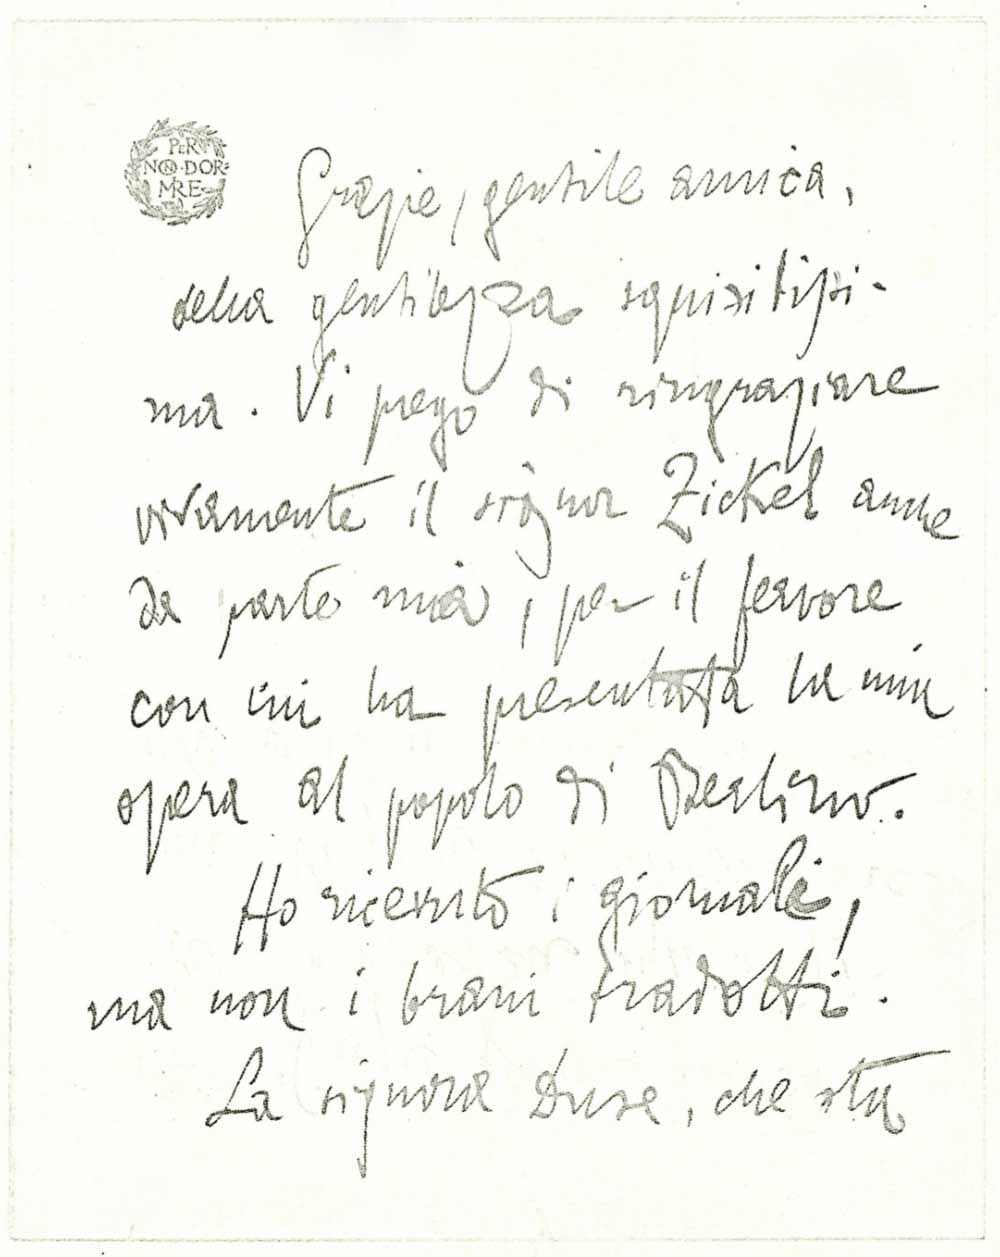 PER
NON·DOR=
MIRE
Grazie, gentile amica,
della gentilezza squisitissi-
ma. Vi prego di ringraziare
vivamente il signor Zickel anche
da parte mia, per il fervore
con cui ha presentata la mia
opera al popolo di Berlino.
Ho ricevuto i giornali,
ma non i brani tradotti.
La signora Duse, che sta